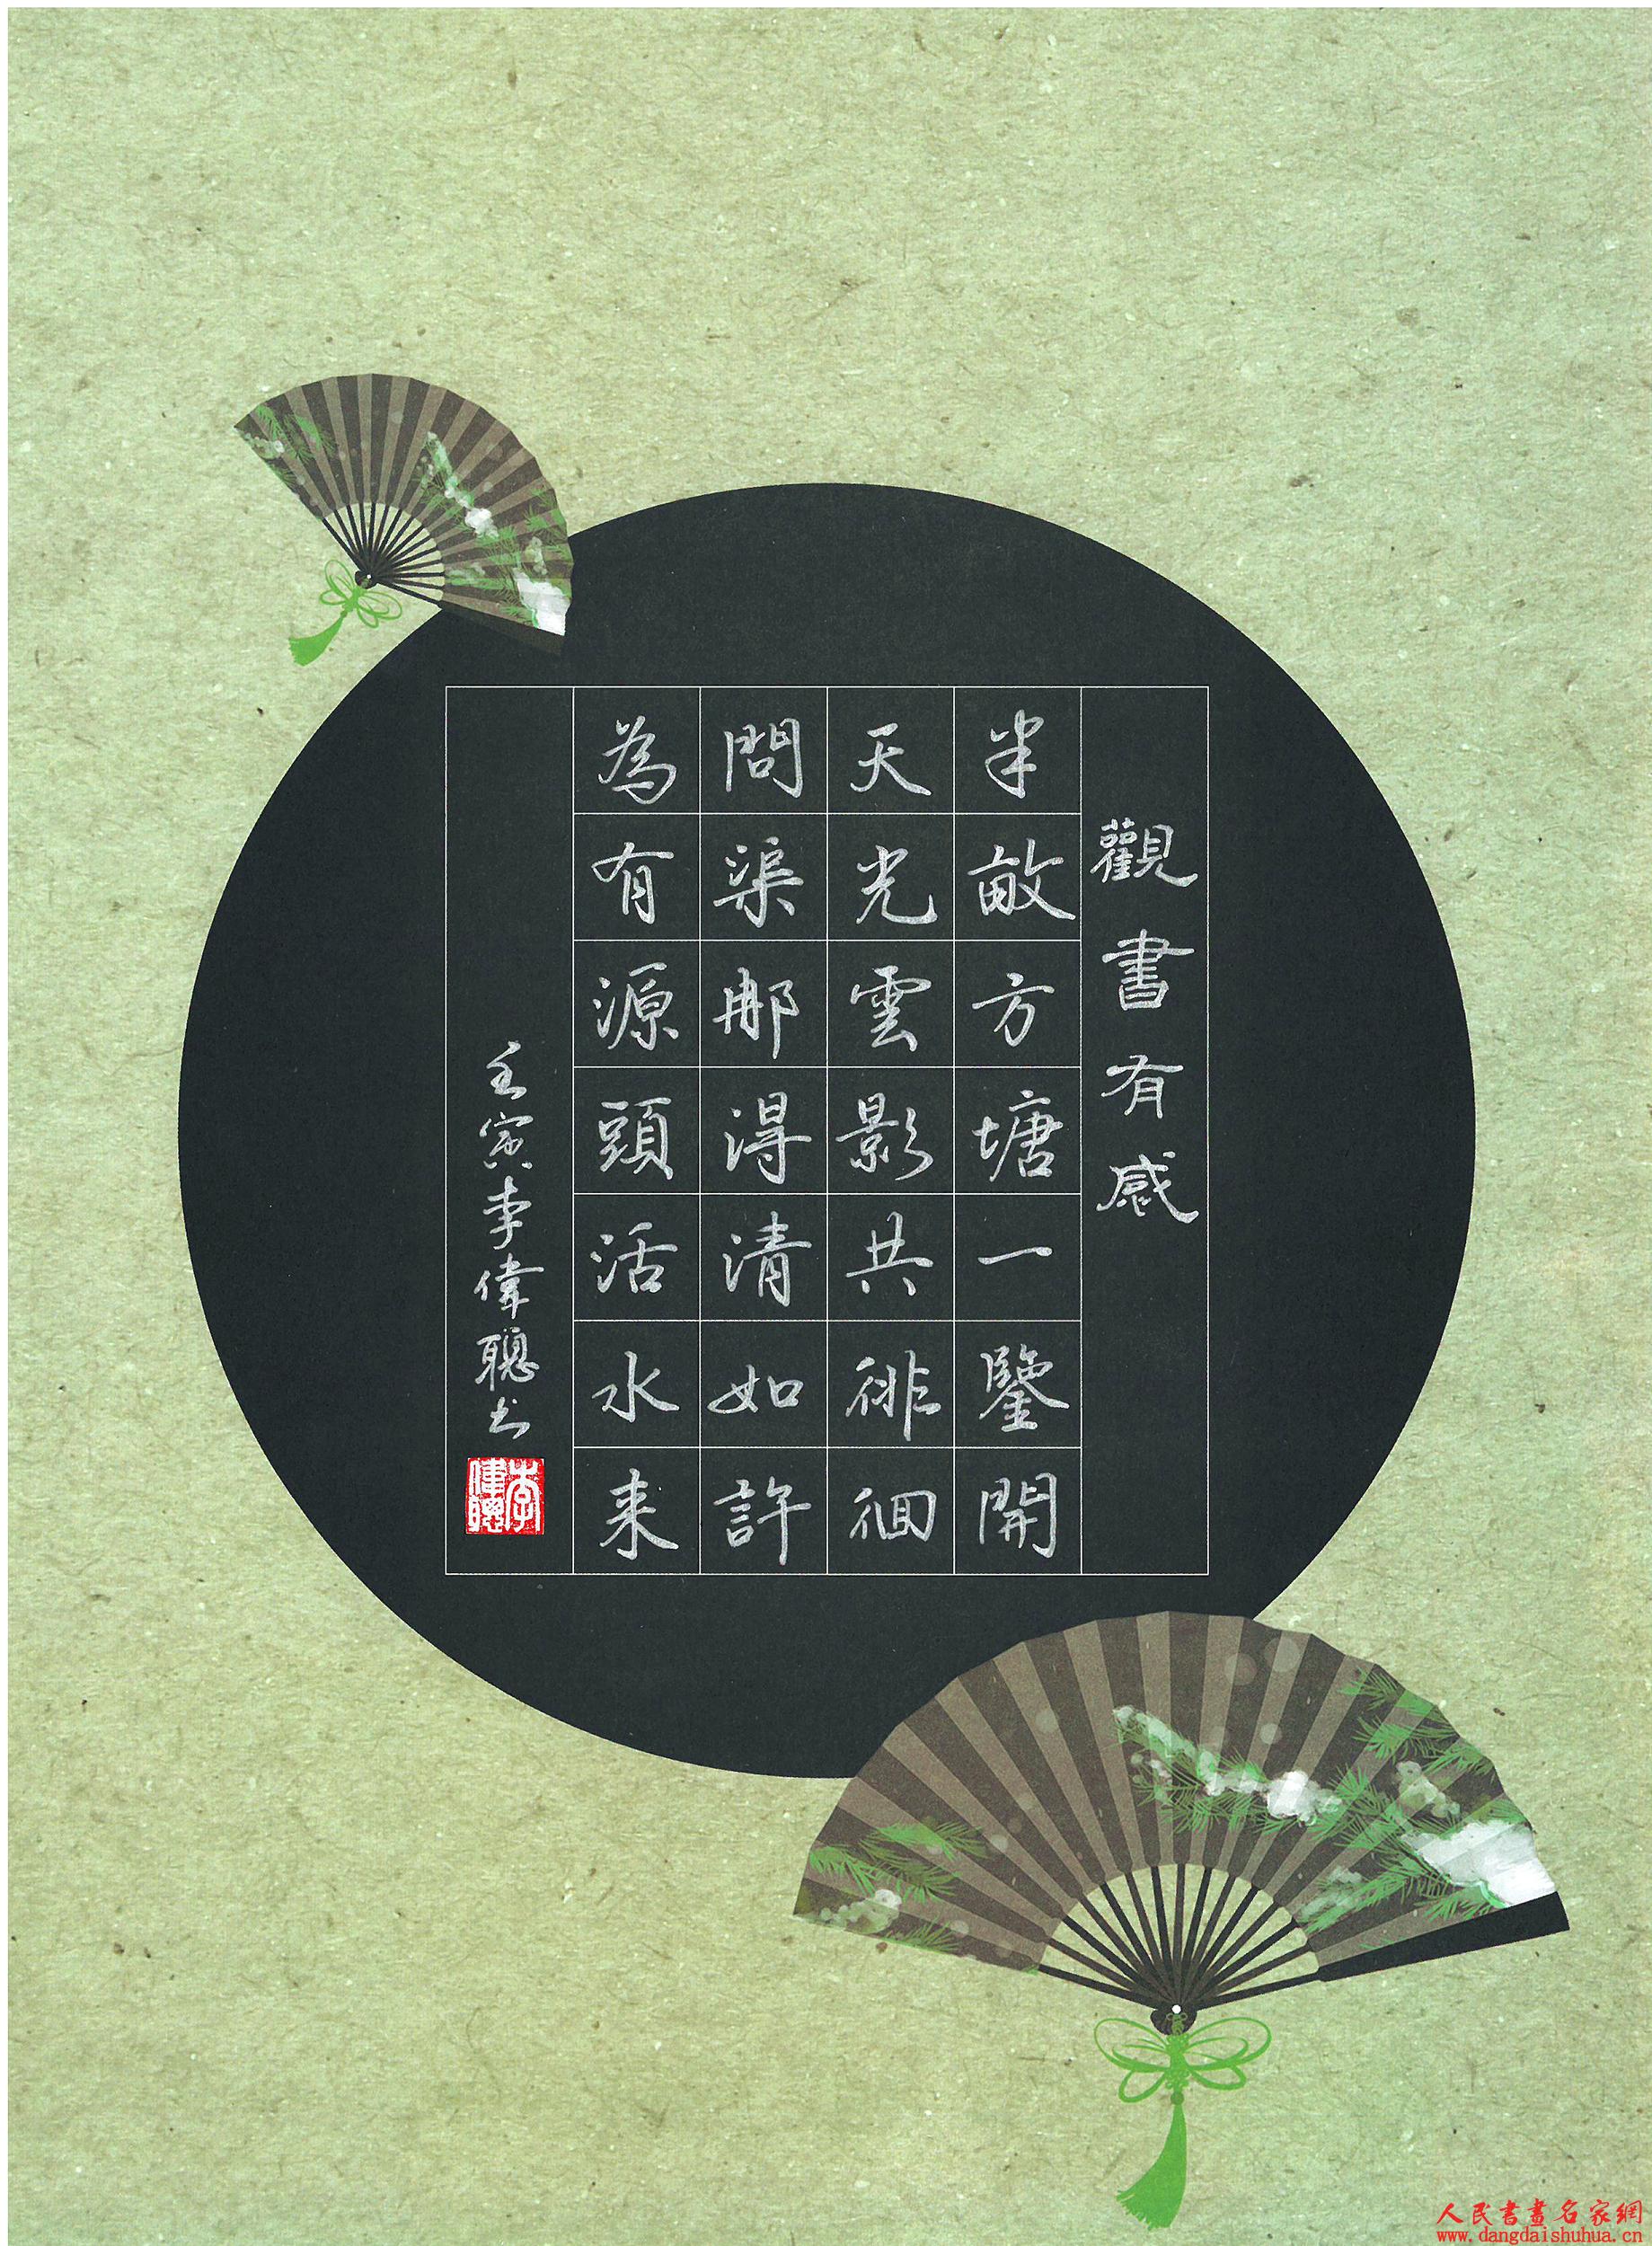 觀書有感
半畝方塘一鑒開
天光雲影共徘徊
問渠那得清如許
為有源頭活水来
壬寅李偉聰书
李偉聰
人民書畫名家網
www.dangdaishuhua.cn